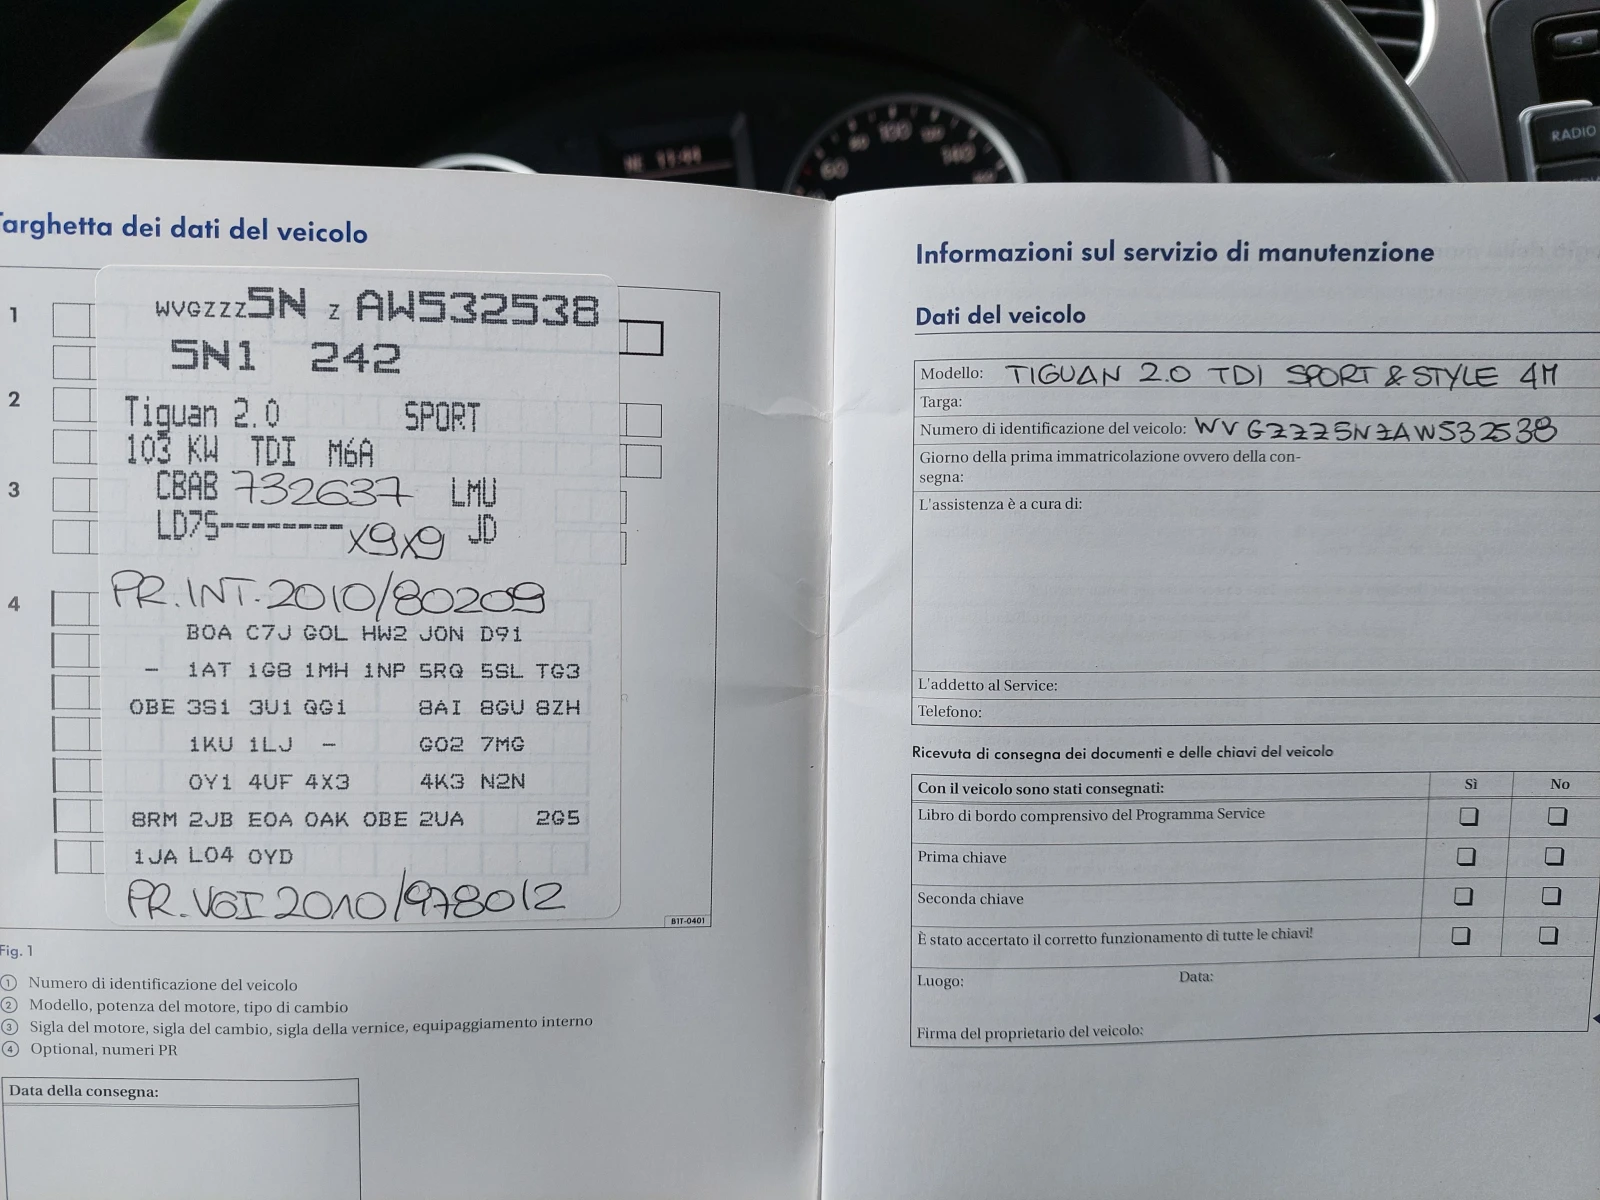 NE 13:44
60
80
100
120
140
RADIO
Targhetta dei dati del veicolo
1
WVGZZZ5N Z AW532538
5N1 242
2
Tiguan 2.0 SPORT
103 KW TDI M6A
3
CBAB 732637 LMU
LD7S-------- X9X9 JD
PR.INT.2010/80209
4
B0A C7J G0L HW2 J0N D91
- 1AT 1G8 1MH 1NP 5RQ 5SL TG3
0BE 3S1 3U1 QG1 8AI 8GU 8ZH
1KU 1LJ - G02 7MG
0Y1 4UF 4X3 4K3 N2N
8RM 2JB E0A 0AK 0BE 2UA 2G5
1JA L04 0YD
PR.VGI 2010/978012
B1T-0401
Fig. 1
1 Numero di identificazione del veicolo
2 Modello, potenza del motore, tipo di cambio
3 Sigla del motore, sigla del cambio, sigla della vernice, equipaggiamento interno
4 Optional, numeri PR
Data della consegna:
Informazioni sul servizio di manutenzione
Dati del veicolo
Modello: TIGUAN 2.0 TDI SPORT & STYLE 4M
Targa:
Numero di identificazione del veicolo: WVGZZZ5NZAW532538
Giorno della prima immatricolazione ovvero della con-
segna:
L'assistenza è a cura di:
L'addetto al Service:
Telefono:
Ricevuta di consegna dei documenti e delle chiavi del veicolo
Con il veicolo sono stati consegnati: Sì No
Libro di bordo comprensivo del Programma Service
Prima chiave
Seconda chiave
È stato accertato il corretto funzionamento di tutte le chiavi!
Luogo: Data:
Firma del proprietario del veicolo: